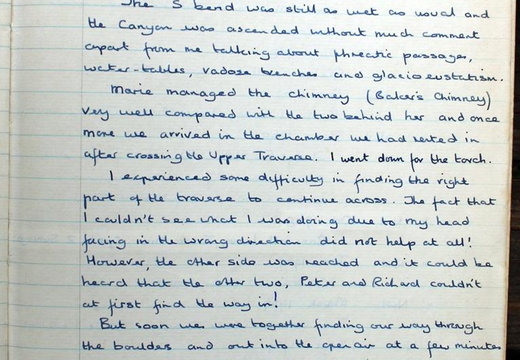 The S bend was still as wet as usual and
the Canyon was ascended without much comment
apart from me talking about phreatic passages,
water-tables, vadose trenches and glacioeustatism.
Marie managed the chimney (Baker's Chimney)
very well compared with the two behind her and once
more we arrived in the chamber we had rested in
after crossing the Upper Traverse. I went down for the torch.
I experienced some difficulty in finding the right
part of the traverse to continue across. The fact that
I couldn't see what I was doing due to my head
facing in the wrong direction did not help at all!
However, the other side was reached and it could be
heard that the other two, Peter and Richard couldn't
at first find the way in!
But soon we were together finding our way through
the boulders and out into the open air at a few minutes